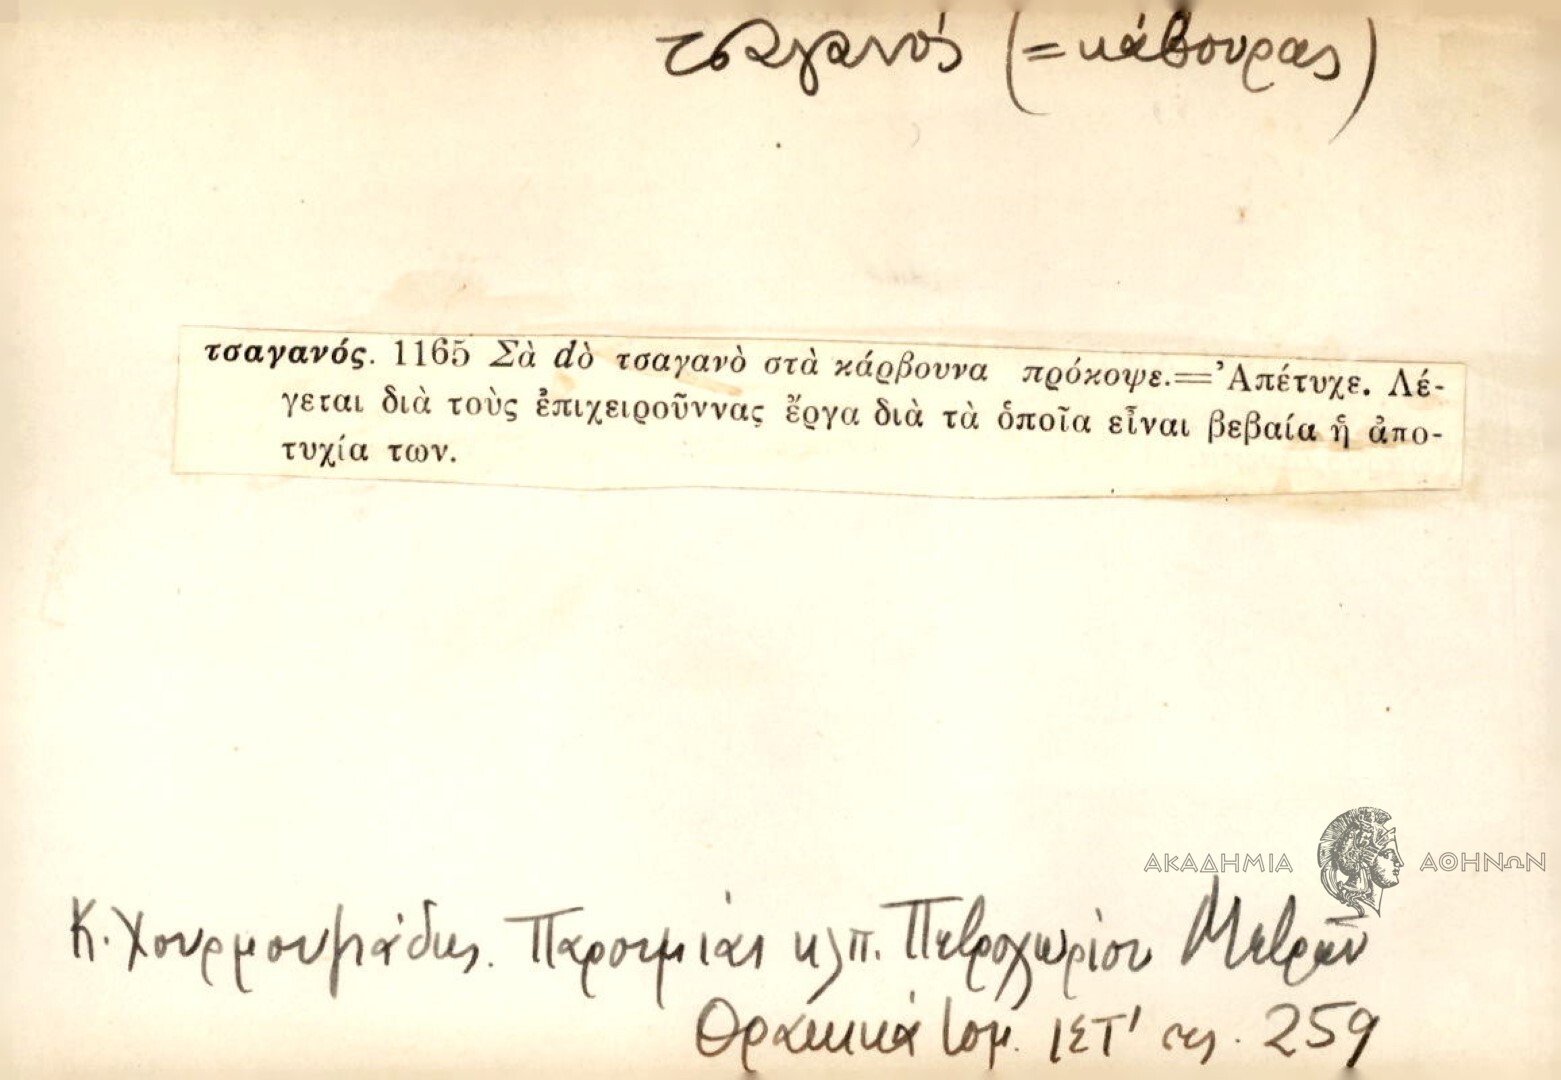 τσαγανός (= κάβουρας)
τσαγανός. 1165 Σὰ dὸ τσαγανὸ στὰ κάρβουνα πρόκοψε.=Ἀπέτυχε. Λέ-
γεται διὰ τοὺς ἐπιχειροῦννας ἔργα διὰ τὰ ὁποῖα εἶναι βεβαία ἡ ἀπο-
τυχία των.
ΑΚΑΔΗΜΙΑ ΑΘΗΝΩΝ
Κ. Χουρμουζιάδης. Παροιμίαι κλπ. Πετροχωρίου Μετρῶν
Θρακικά τομ. ΙΣΤ' σελ. 259